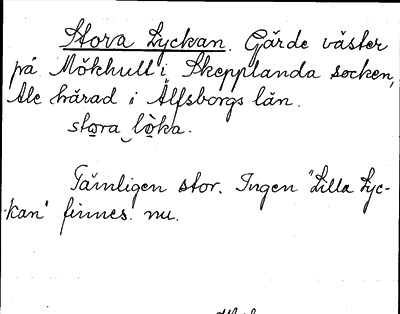 Stora Lyckan. Gärde väster
på Mökhult i Skepplanda socken,
Ale härad i Älfsborgs län.
stora löka.
Tämligen stor. Ingen "Lilla Lyc-
kan" finnes nu.